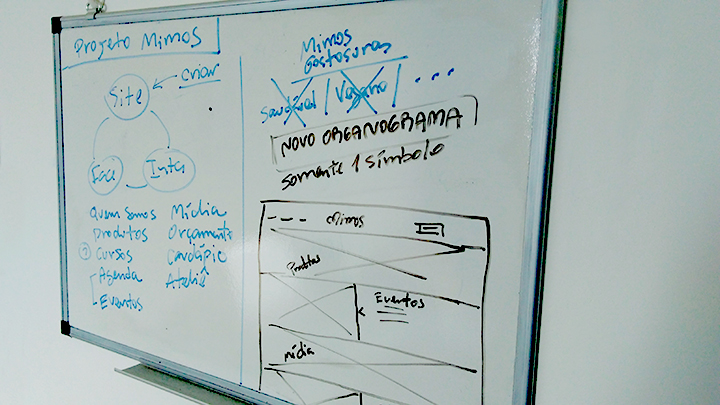 Projeto Mimos
Site
criar
Face
Insta
Quem Somos
Produtos
? Cursos
Agenda
Eventos
Mídia
Orçamento
Cardápio
Ateliê
Mimos
Gostosuras
Saudável / Vegano / ...
NOVO ORGANOGRAMA
somente 1 símbolo
Mimos
Produtos
Eventos
mídia